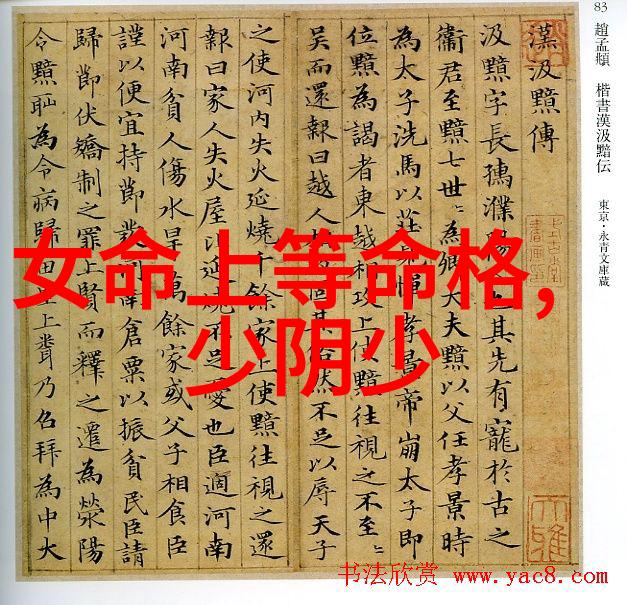 83
趙孟頫 楷書漢汲黯伝 東京・永青文庫蔵
漢汲黯傳
汲黯字長孺濮陽其先有寵於古之
衛君至黯七世〻為卿大夫黯以父任孝景時
為太子洗馬以莊見憚孝景帝崩太子即
位黯為謁者東越相攻上使黯往視之不至〻
吳而還報曰越人相其俗然不足以辱天子
之使河内失火延燒千餘家上使黯往視之還
報曰家人失火屋比延燒不足憂也臣適河南
河南貧人傷水旱萬餘家或父子相食臣
謹以便宜持節發河南倉粟以振貧民臣請
歸節伏矯制之罪上賢而釋之遷為滎陽
令黯恥為令病歸田里上乃召拜為中大
女命上等命格,
少阴少
书法欣赏 www.yac8.com